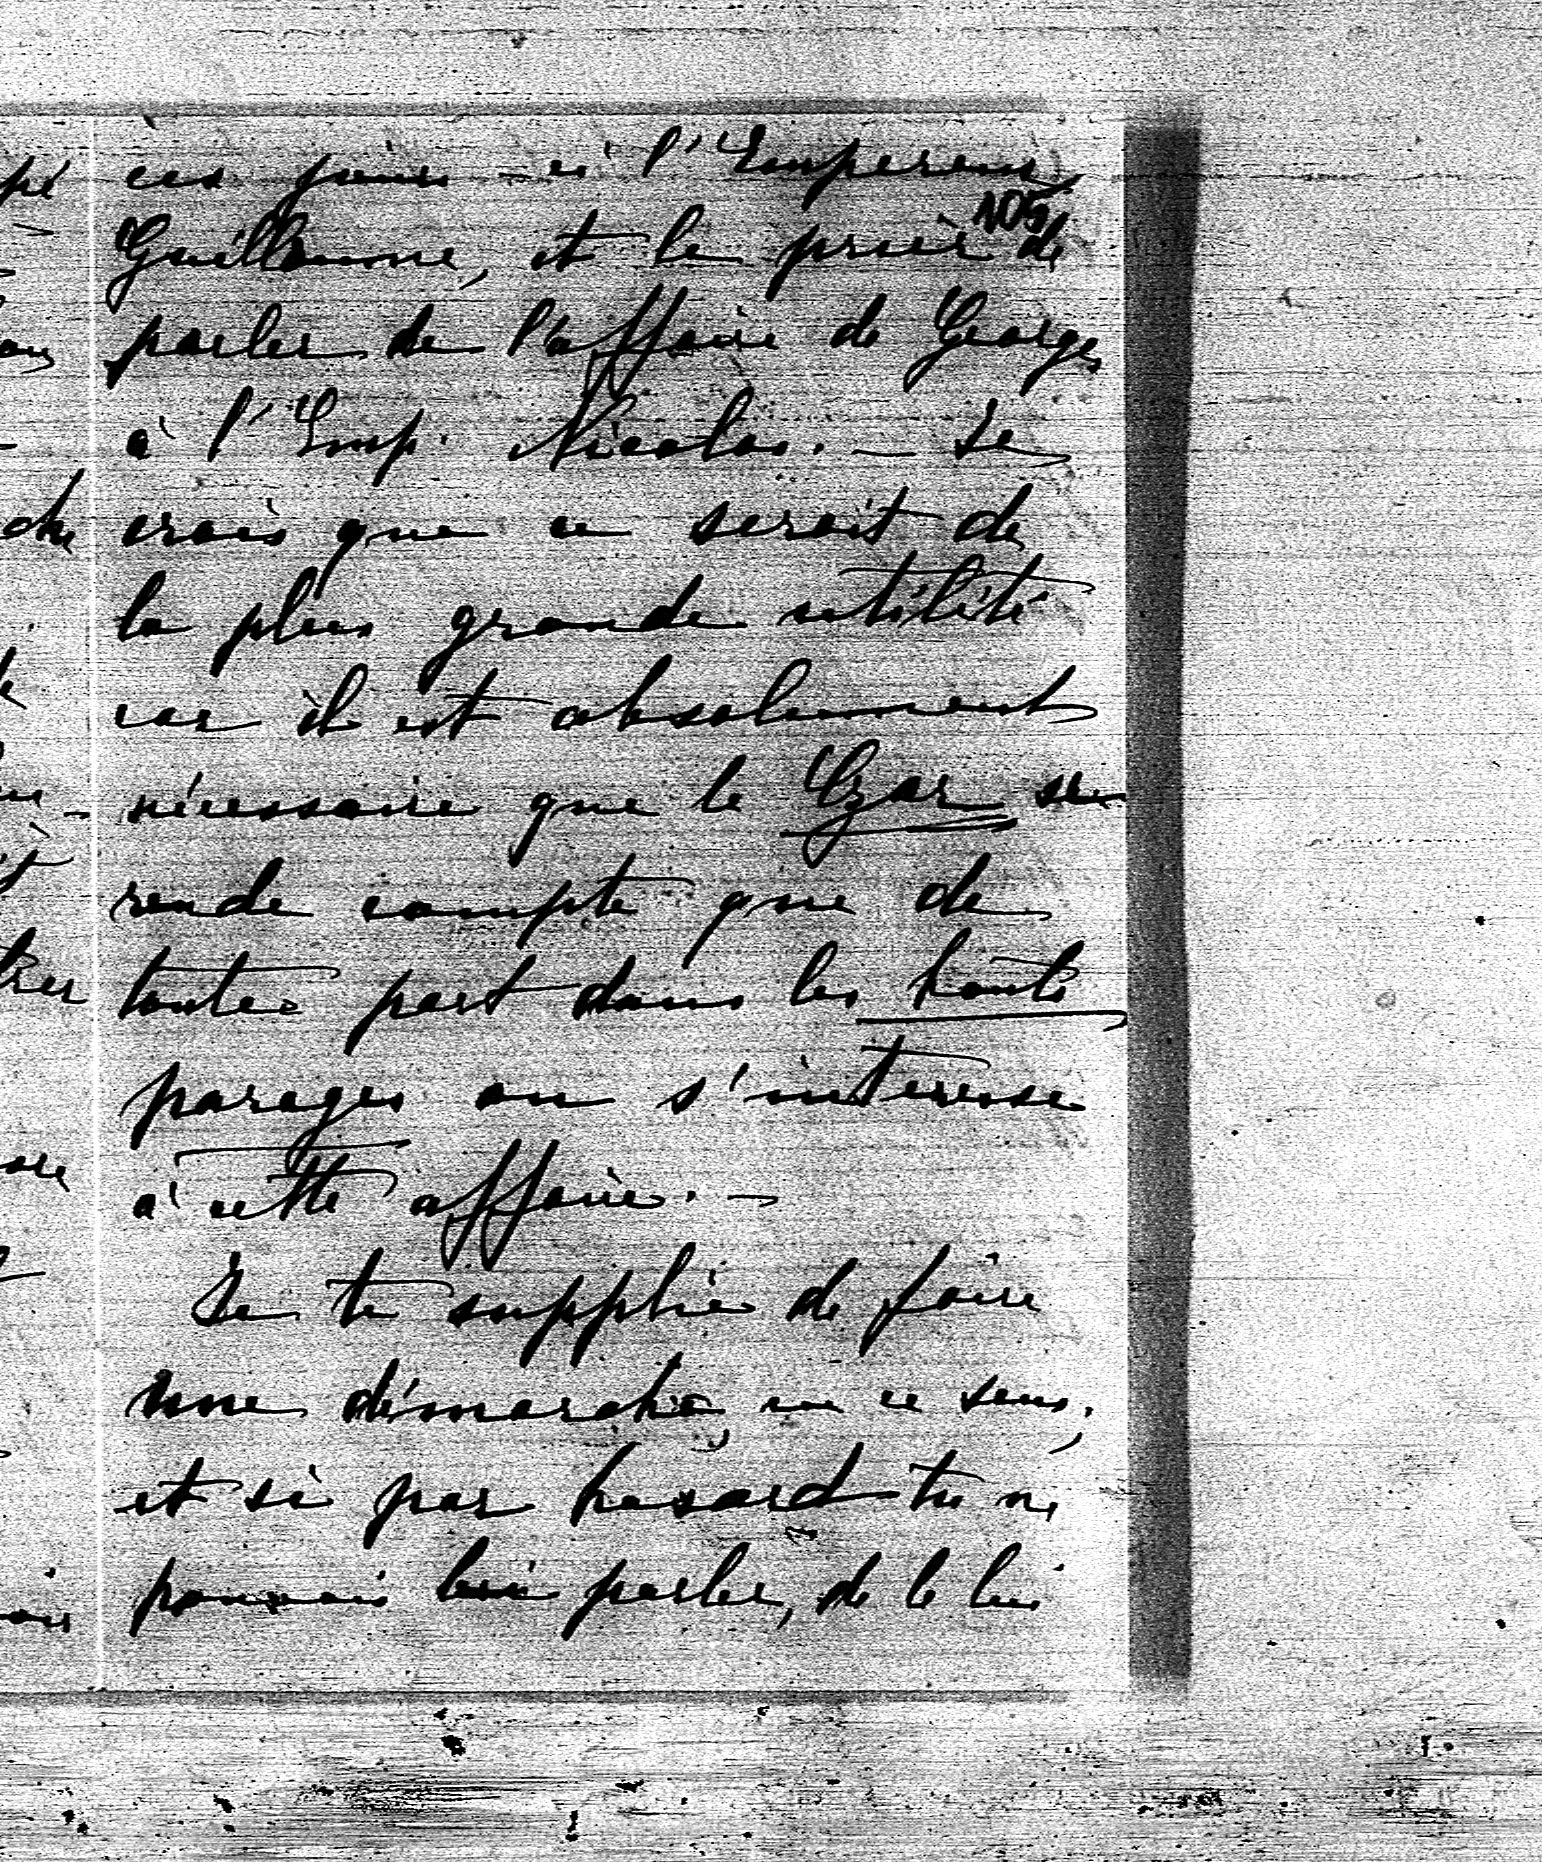 ces jours-ci l'Empereur
105
Guillaume, et le prier de
parler de l'affaire de Georges
à l'Emp. Nicolas. — Je
crois que ce serait de
la plus grande utilité
car il est absolument
nécessaire que le Czar se
rende compte que de
toutes part dans les hauts
parages on s'intéresse
à cette affaire. —
Je te supplie de faire
une démarche en ce sens,
et si par hasard tu ne
pouvais lui parler, de le lui